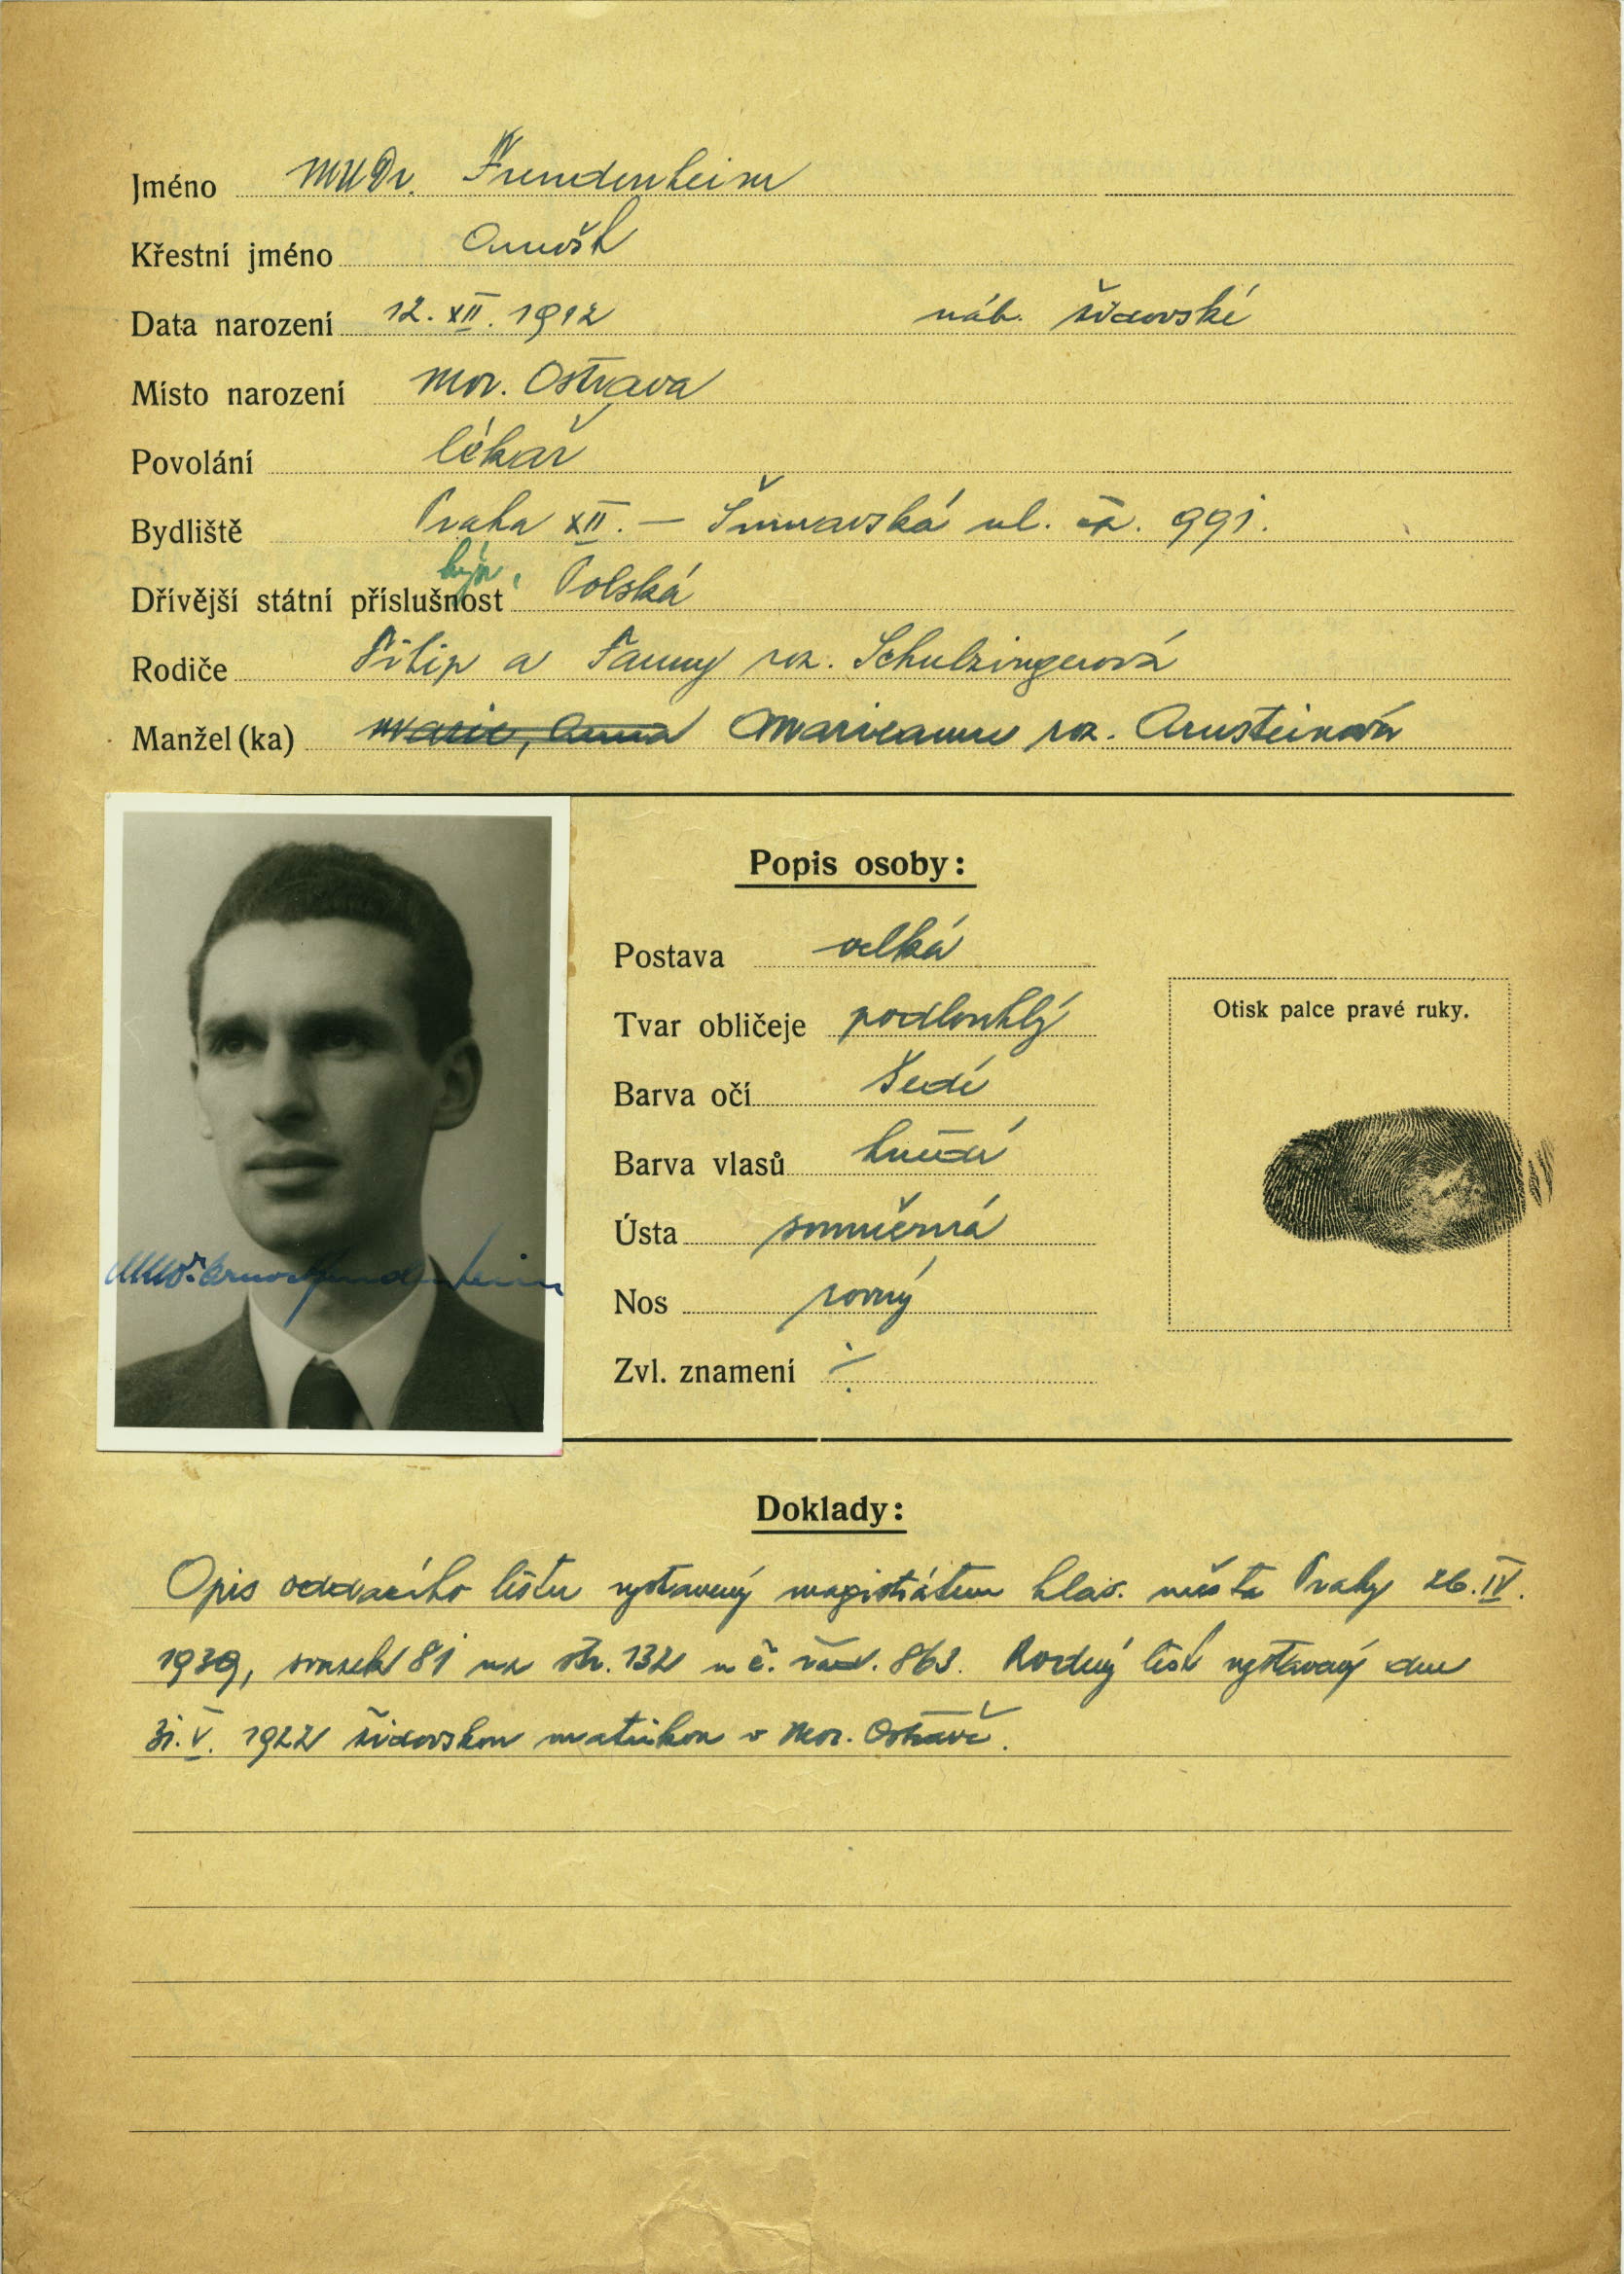 Jméno MUDr. Freudenheim
Křestní jméno Arnošt
Data narození 12. XII. 1912 náb. židovské
Místo narození Mor. Ostrava
Povolání lékař
Bydliště Praha XII. – Šumavská ul. čp. 991.
býv.
Dřívější státní příslušnost Polská
Rodiče Filip a Fanny roz. Schulzingerová
Manžel(ka) Marie, Anna Marieanne roz. Arnsteinová
Popis osoby:
Postava velká
Tvar obličeje podlouhlý
Barva očí šedé
Barva vlasů hnědé
Ústa souměrná
Nos rovný
Zvl. znamení ·/·
Otisk palce pravé ruky.
MUDr. Arnošt Freudenheim
Doklady:
Opis oddacího listu vystavený magistrátem hlav. města Prahy 26. IV.
1939, svazek 81 na str. 132 u č. řad. 863. Rodný list vystavený dne
31. V. 1922 židovskou matrikou v Mor. Ostravě.